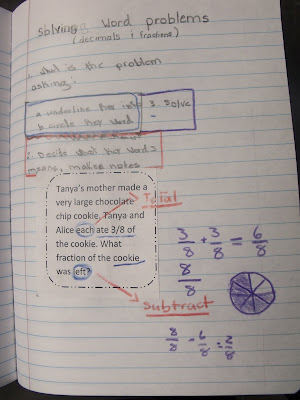 Solving Word problems
(decimals & fractions)
1. what is the problem
asking?
a underline key info
b circle key word
3. Solve
2. Decide what key words
means, making notes
Tanya's mother made a
very large chocolate
chip cookie. Tanya and
Alice each ate 3/8 of
the cookie. What
fraction of the cookie
was left?
Total
3/8 + 3/8 = 6/8
8/8
subtract
8/8 - 6/8 = 2/8